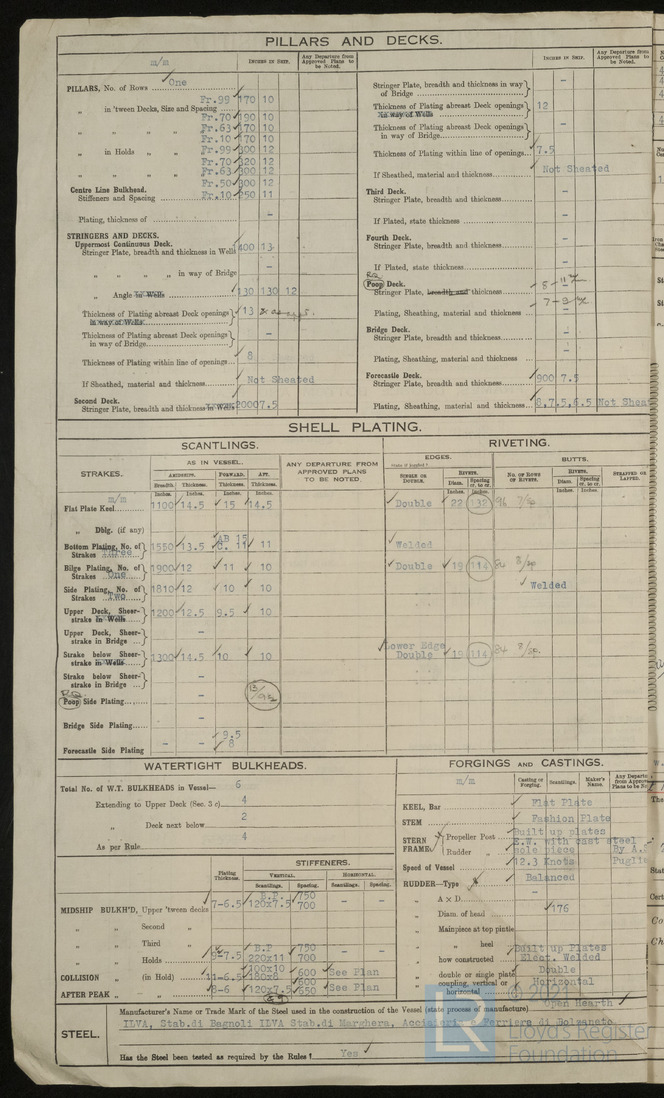 PILLARS AND DECKS.
m/m
INCHES IN SHIP.
Any Departure from Approved Plans to be Noted.
PILLARS, No. of Rows One
Fr.99 170 10
„ in 'tween Decks, Size and Spacing Fr.70 190 10
„ „ „ Fr.63 170 10
Fr.10 170 10
„ in Holds „ „ Fr.99 300 12
Fr.70 320 12
„ „ „ Fr.63 300 12
Fr.50 300 12
Centre Line Bulkhead.
Stiffeners and Spacing Fr.10 250 11
Plating, thickness of –
STRINGERS AND DECKS.
Uppermost Continuous Deck.
Stringer Plate, breadth and thickness in Wells 400 13
„ „ „ „ in way of Bridge –
„ Angle in Wells 130 130 12
Thickness of Plating abreast Deck openings in way of Wells 13
Thickness of Plating abreast Deck openings in way of Bridge –
Thickness of Plating within line of openings 8
If Sheathed, material and thickness Not Sheated
Second Deck.
Stringer Plate, breadth and thickness in Wells 2000 7.5
INCHES IN SHIP.
Any Departure from Approved Plans to be Noted.
Stringer Plate, breadth and thickness in way of Bridge –
Thickness of Plating abreast Deck openings in way of Wells 12
Thickness of Plating abreast Deck openings in way of Bridge –
Thickness of Plating within line of openings 7.5
If Sheathed, material and thickness Not Sheated
Third Deck.
Stringer Plate, breadth and thickness –
If Plated, state thickness –
Fourth Deck.
Stringer Plate, breadth and thickness –
If Plated, state thickness –
R.Q.
Poop Deck.
Stringer Plate, breadth and thickness 8-11
Plating, Sheathing, material and thickness 7-9
Bridge Deck.
Stringer Plate, breadth and thickness –
Plating, Sheathing, material and thickness –
Forecastle Deck.
Stringer Plate, breadth and thickness 900 7.5
Plating, Sheathing, material and thickness 8,7.5,6.5 Not Sheat
SHELL PLATING.
SCANTLINGS.
RIVETING.
STRAKES.
AS IN VESSEL.
AMIDSHIPS. FORWARD. AFT.
Breadth Thickness. Thickness. Thickness.
Inches. Inches. Inches. Inches.
ANY DEPARTURE FROM APPROVED PLANS TO BE NOTED.
EDGES.
State if joggled?
SINGLE OR DOUBLE.
RIVETS.
Diam. Spacing cr. to cr.
Inches. Inches.
BUTTS.
No. OF ROWS OF RIVETS.
RIVETS.
Diam. Spacing cr. to cr.
Inches. Inches.
STRAPPED OR LAPPED.
m/m
Flat Plate Keel 1100 14.5 15 14.5 Double 22 132 96
„ Dblg. (if any)
Bottom Plating, No. of Strakes Three 1550 13.5 AB 15 11 11 Welded
Bilge Plating, No. of Strakes One 1900 12 11 10 Double 19 114 84
Side Plating, No. of Strakes Two 1810 12 10 10 Welded
Upper Deck, Sheerstrake in Wells 1200 12.5 9.5 10
Upper Deck, Sheerstrake in Bridge –
Strake below Sheerstrake in Wells 1300 14.5 10 10 Lower Edge Double 19 114 84
Strake below Sheerstrake in Bridge –
R.Q.
Poop Side Plating –
Bridge Side Plating –
Forecastle Side Plating – – 9.5 8
WATERTIGHT BULKHEADS.
Total No. of W.T. BULKHEADS in Vessel— 6
Extending to Upper Deck (Sec. 3 c) 4
„ Deck next below 2
As per Rule 4
STIFFENERS.
Plating Thickness.
VERTICAL. HORIZONTAL.
Scantlings. Spacing. Scantlings. Spacing.
MIDSHIP BULKH'D, Upper 'tween decks 7-6.5 B.P. 120x7.5 750 700 – –
„ „ Second „
„ „ Third „
„ „ Holds 9-7.5 B.P 220x11 750 700 – –
COLLISION „ (in Hold) 11-6.5 100x10 180x8 600 See Plan
AFTER PEAK „ „ 8-6 120x7.5 600 650 See Plan
FORGINGS AND CASTINGS.
m/m
Casting or Forging.
Scantlings.
Maker's Name.
KEEL, Bar Flat Plate
STEM Fashion Plate
STERN FRAME Propeller Post Built up plates
Rudder „ E.W. with cast steel sole piece By A.
Speed of Vessel 12.3 Knots
RUDDER—Type Balanced
„ A x D –
„ Diam. of head 176
„ Mainpiece at top pintle
„ „ heel
„ how constructed Built up Plates Elect. Welded
„ double or single plate Double
„ coupling, vertical or horizontal Horizontal
STEEL.
Manufacturer's Name or Trade Mark of the Steel used in the construction of the Vessel (state process of manufacture) Open Hearth
ILVA, Stab.di Bagnoli ILVA Stab.di Marghera, Acciaierie e Ferriere di Bolzaneto
Has the Steel been tested as required by the Rules? Yes
Lloyd's Register
Foundation